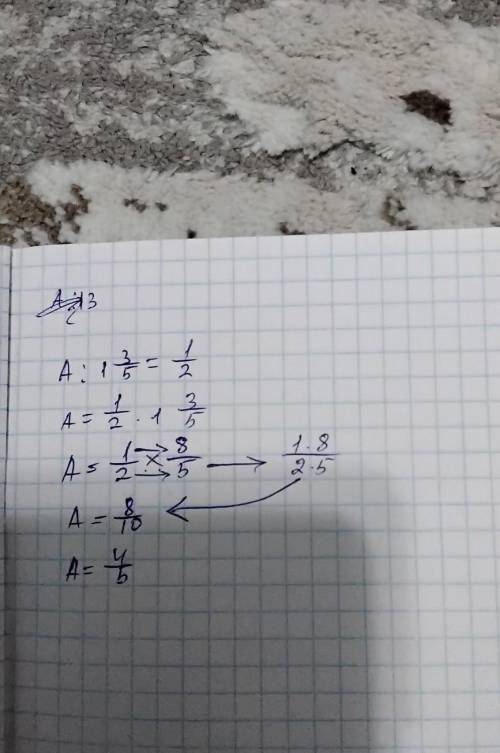 A : 1 3/5 = 1/2
A = 1/2 · 1 3/5
A = 1/2 × 8/5 → (1·8)/(2·5)
A = 8/10
A = 4/5